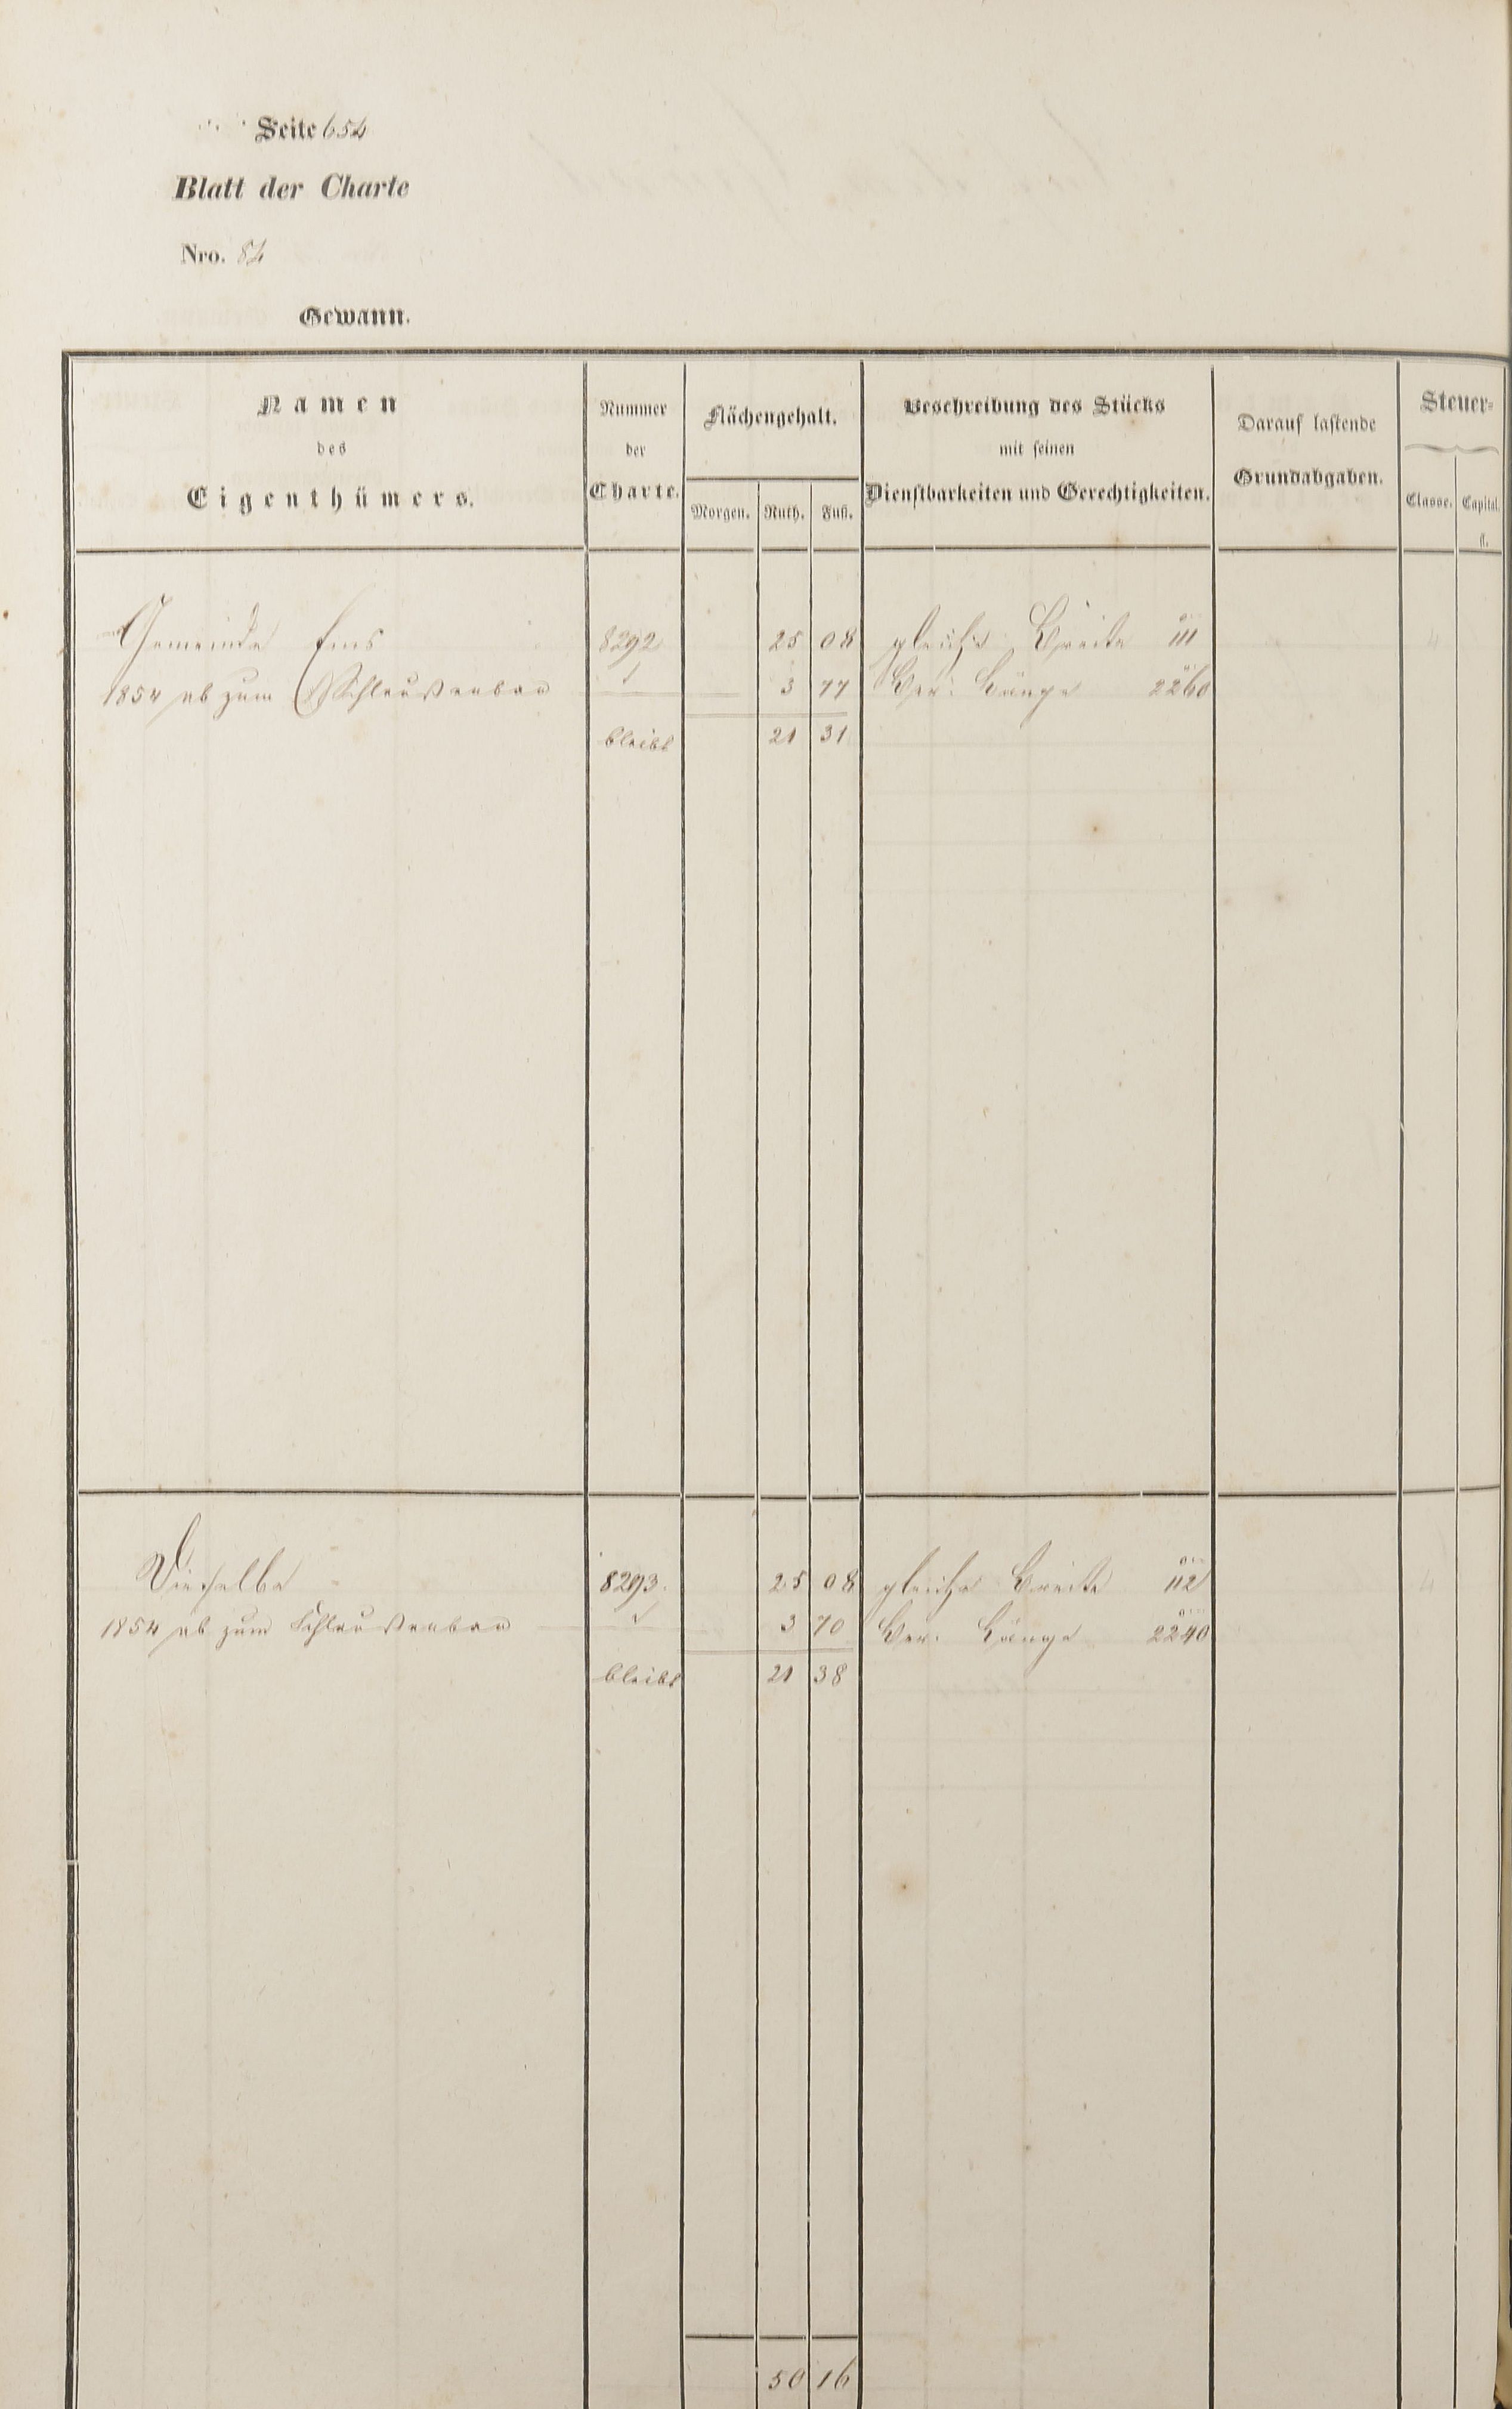 Seite 654
Blatt der Charte
Nro. 84
Gewann.
Namen
des
Eigenthümers.
Nummer
der
Charte.
Flächengehalt.
Morgen. Ruth. Fuß.
Beschreibung des Stücks
mit seinen
Dienstbarkeiten und Gerechtigkeiten.
Darauf lastende
Grundabgaben.
Steuer-
Classe. Capital.
fl.
Gemeinde Ems 8292 25 08 gleiche Breite 111 4
1854 ab zum Schleußenbau 3 77 Ber: Länge 2260
bleibt 21 31
Dieselbe 8293. 25 08 gleiche Breite 112 4
1854 ab zum Schleußenbau 3 70 Ber: Länge 2240
bleibt 21 38
50 16